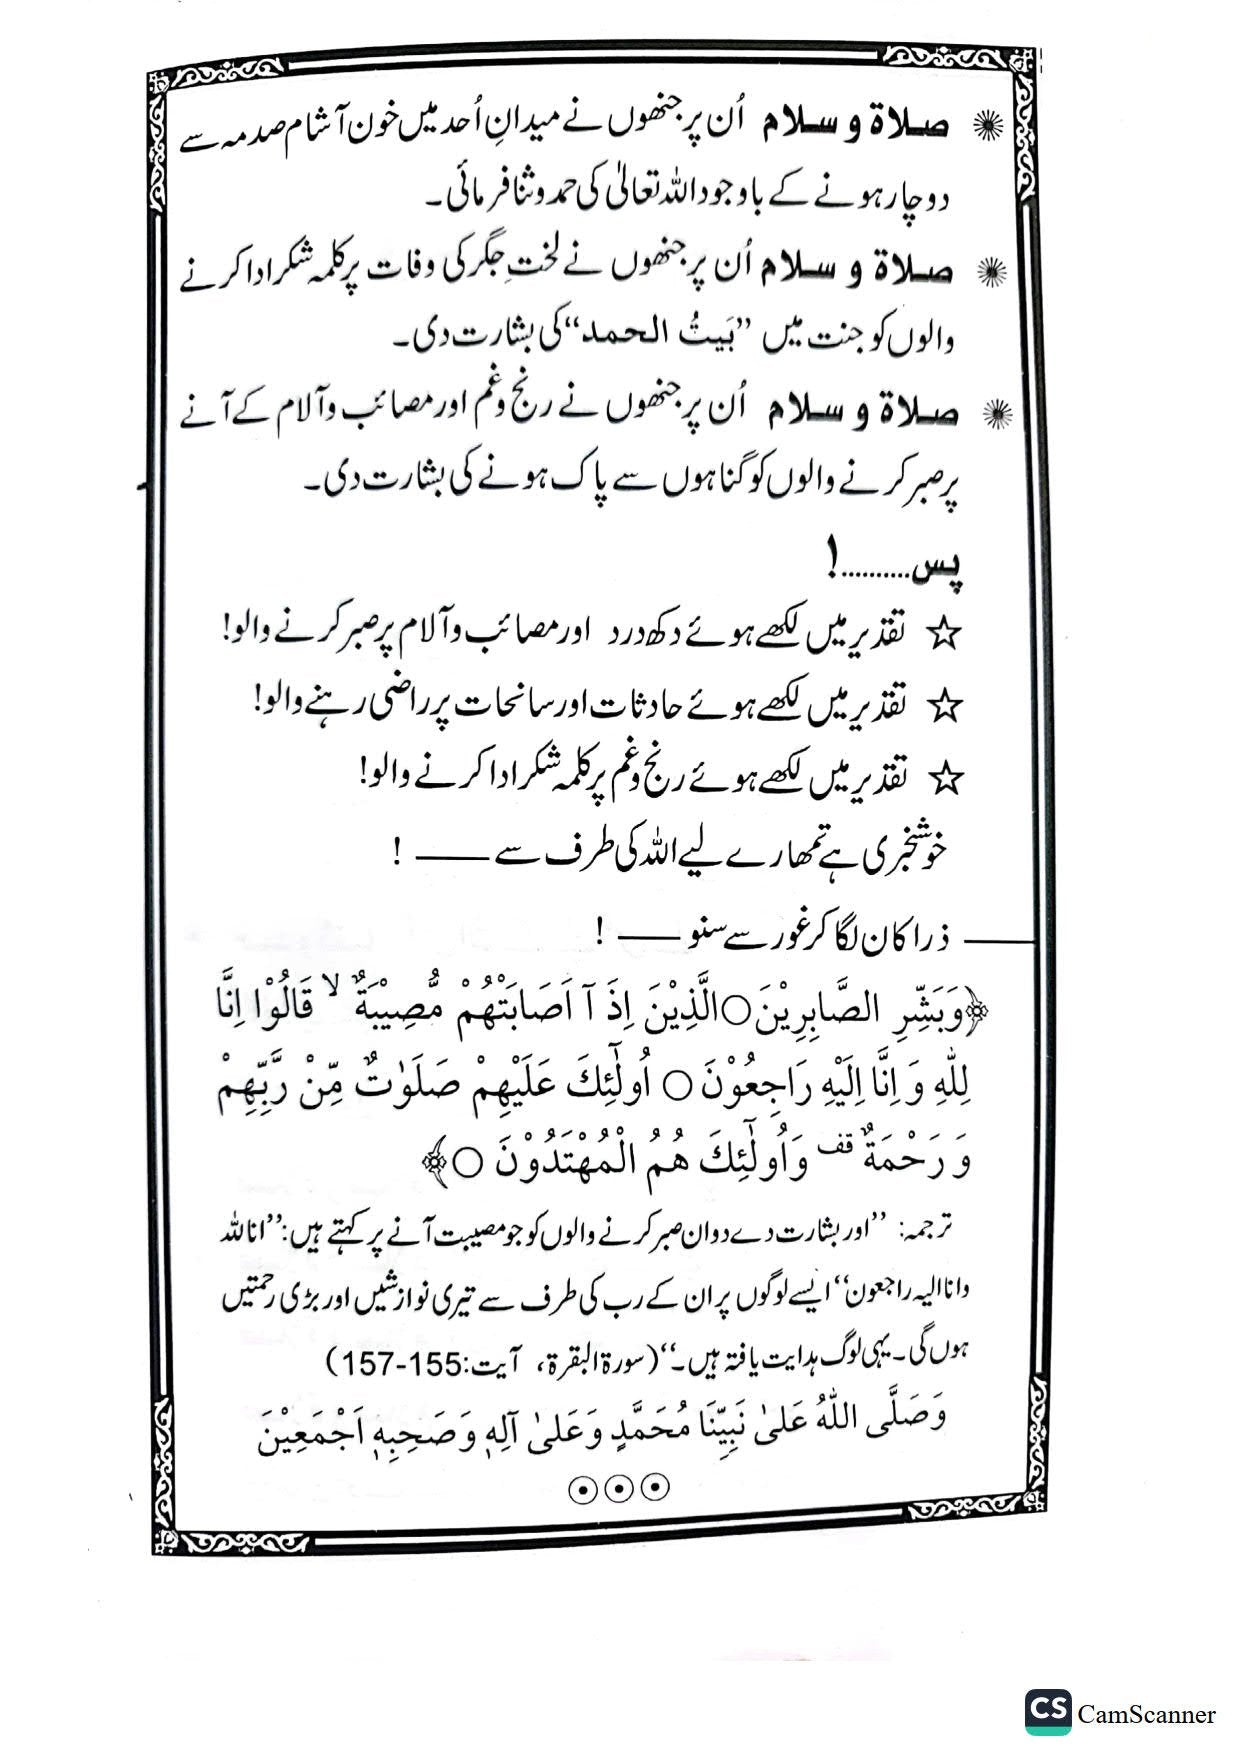 صلاۃ و سلام اُن پر جنھوں نے میدانِ اُحد میں خون آشام صدمہ سے
دوچار ہونے کے باوجود اللہ تعالیٰ کی حمد و ثنا فرمائی۔
صلاۃ و سلام اُن پر جنھوں نے لختِ جگر کی وفات پر کلمہ شکر ادا کرنے
والوں کو جنت میں ’’بَیتُ الحمد‘‘ کی بشارت دی۔
صلاۃ و سلام اُن پر جنھوں نے رنج و غم اور مصائب و آلام کے آنے
پر صبر کرنے والوں کو گناہوں سے پاک ہونے کی بشارت دی۔
پس..........!
☆ تقدیر میں لکھے ہوئے دکھ درد اور مصائب و آلام پر صبر کرنے والو!
☆ تقدیر میں لکھے ہوئے حادثات اور سانحات پر راضی رہنے والو!
☆ تقدیر میں لکھے ہوئے رنج و غم پر کلمہ شکر ادا کرنے والو!
خوشخبری ہے تمھارے لیے اللہ کی طرف سے —— !
—— ذرا کان لگا کر غور سے سنو —— !
﴿وَبَشِّرِ الصَّابِرِیْنَ○الَّذِیْنَ اِذَآ اَصَابَتْهُمْ مُّصِیْبَةٌ ۙ قَالُوْا اِنَّا
لِلّٰهِ وَ اِنَّا اِلَیْهِ رَاجِعُوْنَ○ اُولٰٓئِكَ عَلَیْهِمْ صَلَوٰتٌ مِّنْ رَّبِّهِمْ
وَ رَحْمَةٌ قف وَاُولٰٓئِكَ هُمُ الْمُهْتَدُوْنَ ○﴾
ترجمہ: ’’اور بشارت دے دو ان صبر کرنے والوں کو جو مصیبت آنے پر کہتے ہیں: ’’انا للہ
وانا الیہ راجعون‘‘ ایسے لوگوں پر ان کے رب کی طرف سے تیری نوازشیں اور بڑی رحمتیں
ہوں گی۔ یہی لوگ ہدایت یافتہ ہیں۔‘‘ (سورۃ البقرۃ، آیت:155-157)
وَصَلَّی اللّٰهُ عَلیٰ نَبِیِّنَا مُحَمَّدٍ وَعَلیٰ آلِهٖ وَصَحِبِهٖ اَجْمَعِیْنَ
CS CamScanner